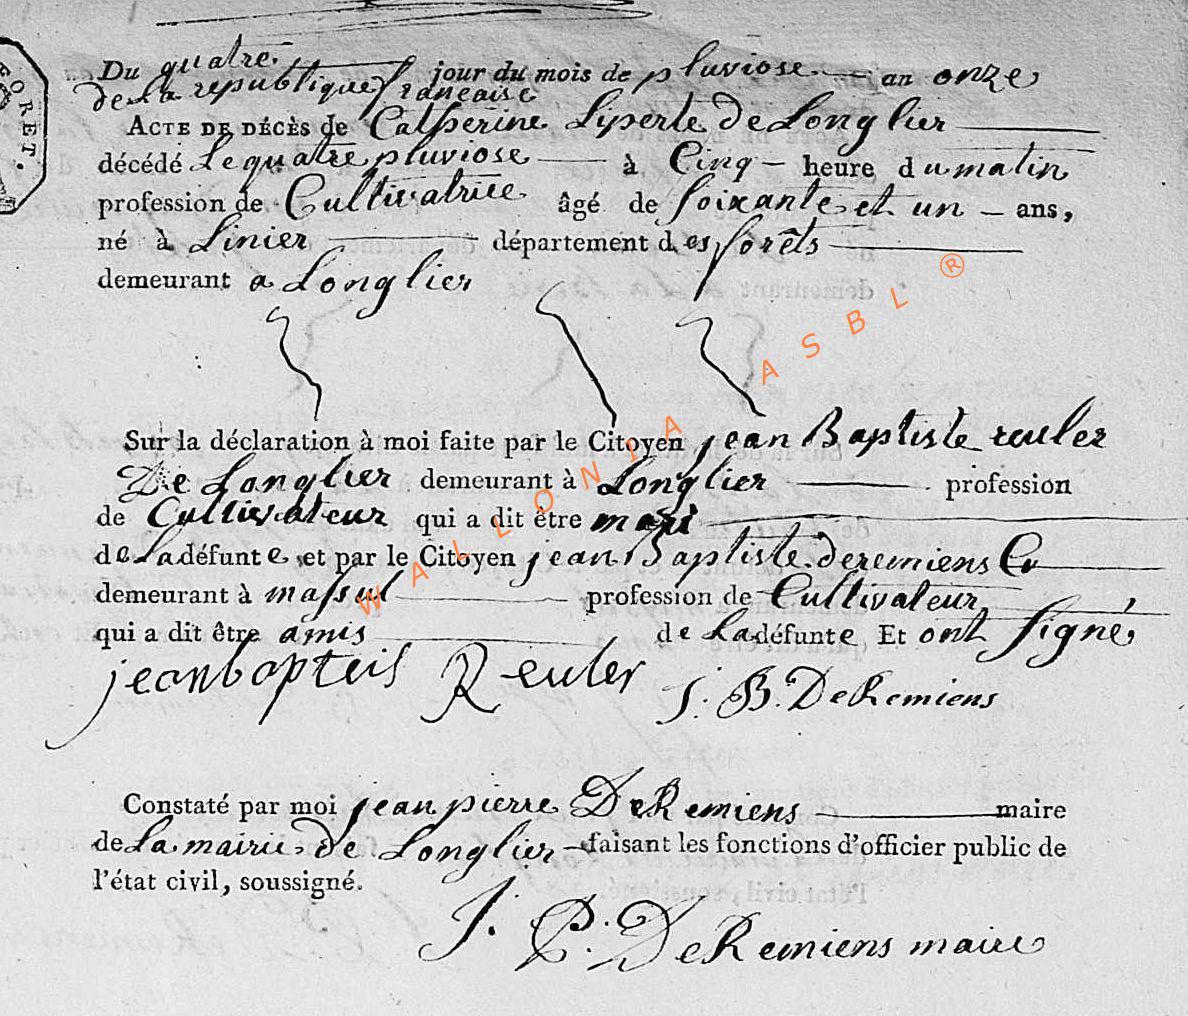 FORET.
Du quatre jour du mois de pluviose an onze
de La republique française
ACTE DE DÉCÈS de Catherine Liperte de Longlier
décédé Le quatre pluviose à Cinq heure du matin
profession de Cultivatrice âgé de soixante et un ans,
né à Linier département des forêts
demeurant a Longlier
Sur la déclaration à moi faite par le Citoyen jean Baptiste reuler
De Longlier demeurant à Longlier profession
de Cultivateur qui a dit être mari
de La défunte et par le Citoyen jean Baptiste deremiens
demeurant à massul profession de Cultivateur
qui a dit être amis de La défunte Et ont signé,
jeanbapteis Reuler J. B. DeRemiens
Constaté par moi jean pierre DeRemiens maire
de La mairie de Longlier faisant les fonctions d'officier public de
l'état civil, soussigné.
J. P. DeRemiens maire
WALLONIA ASBL ®